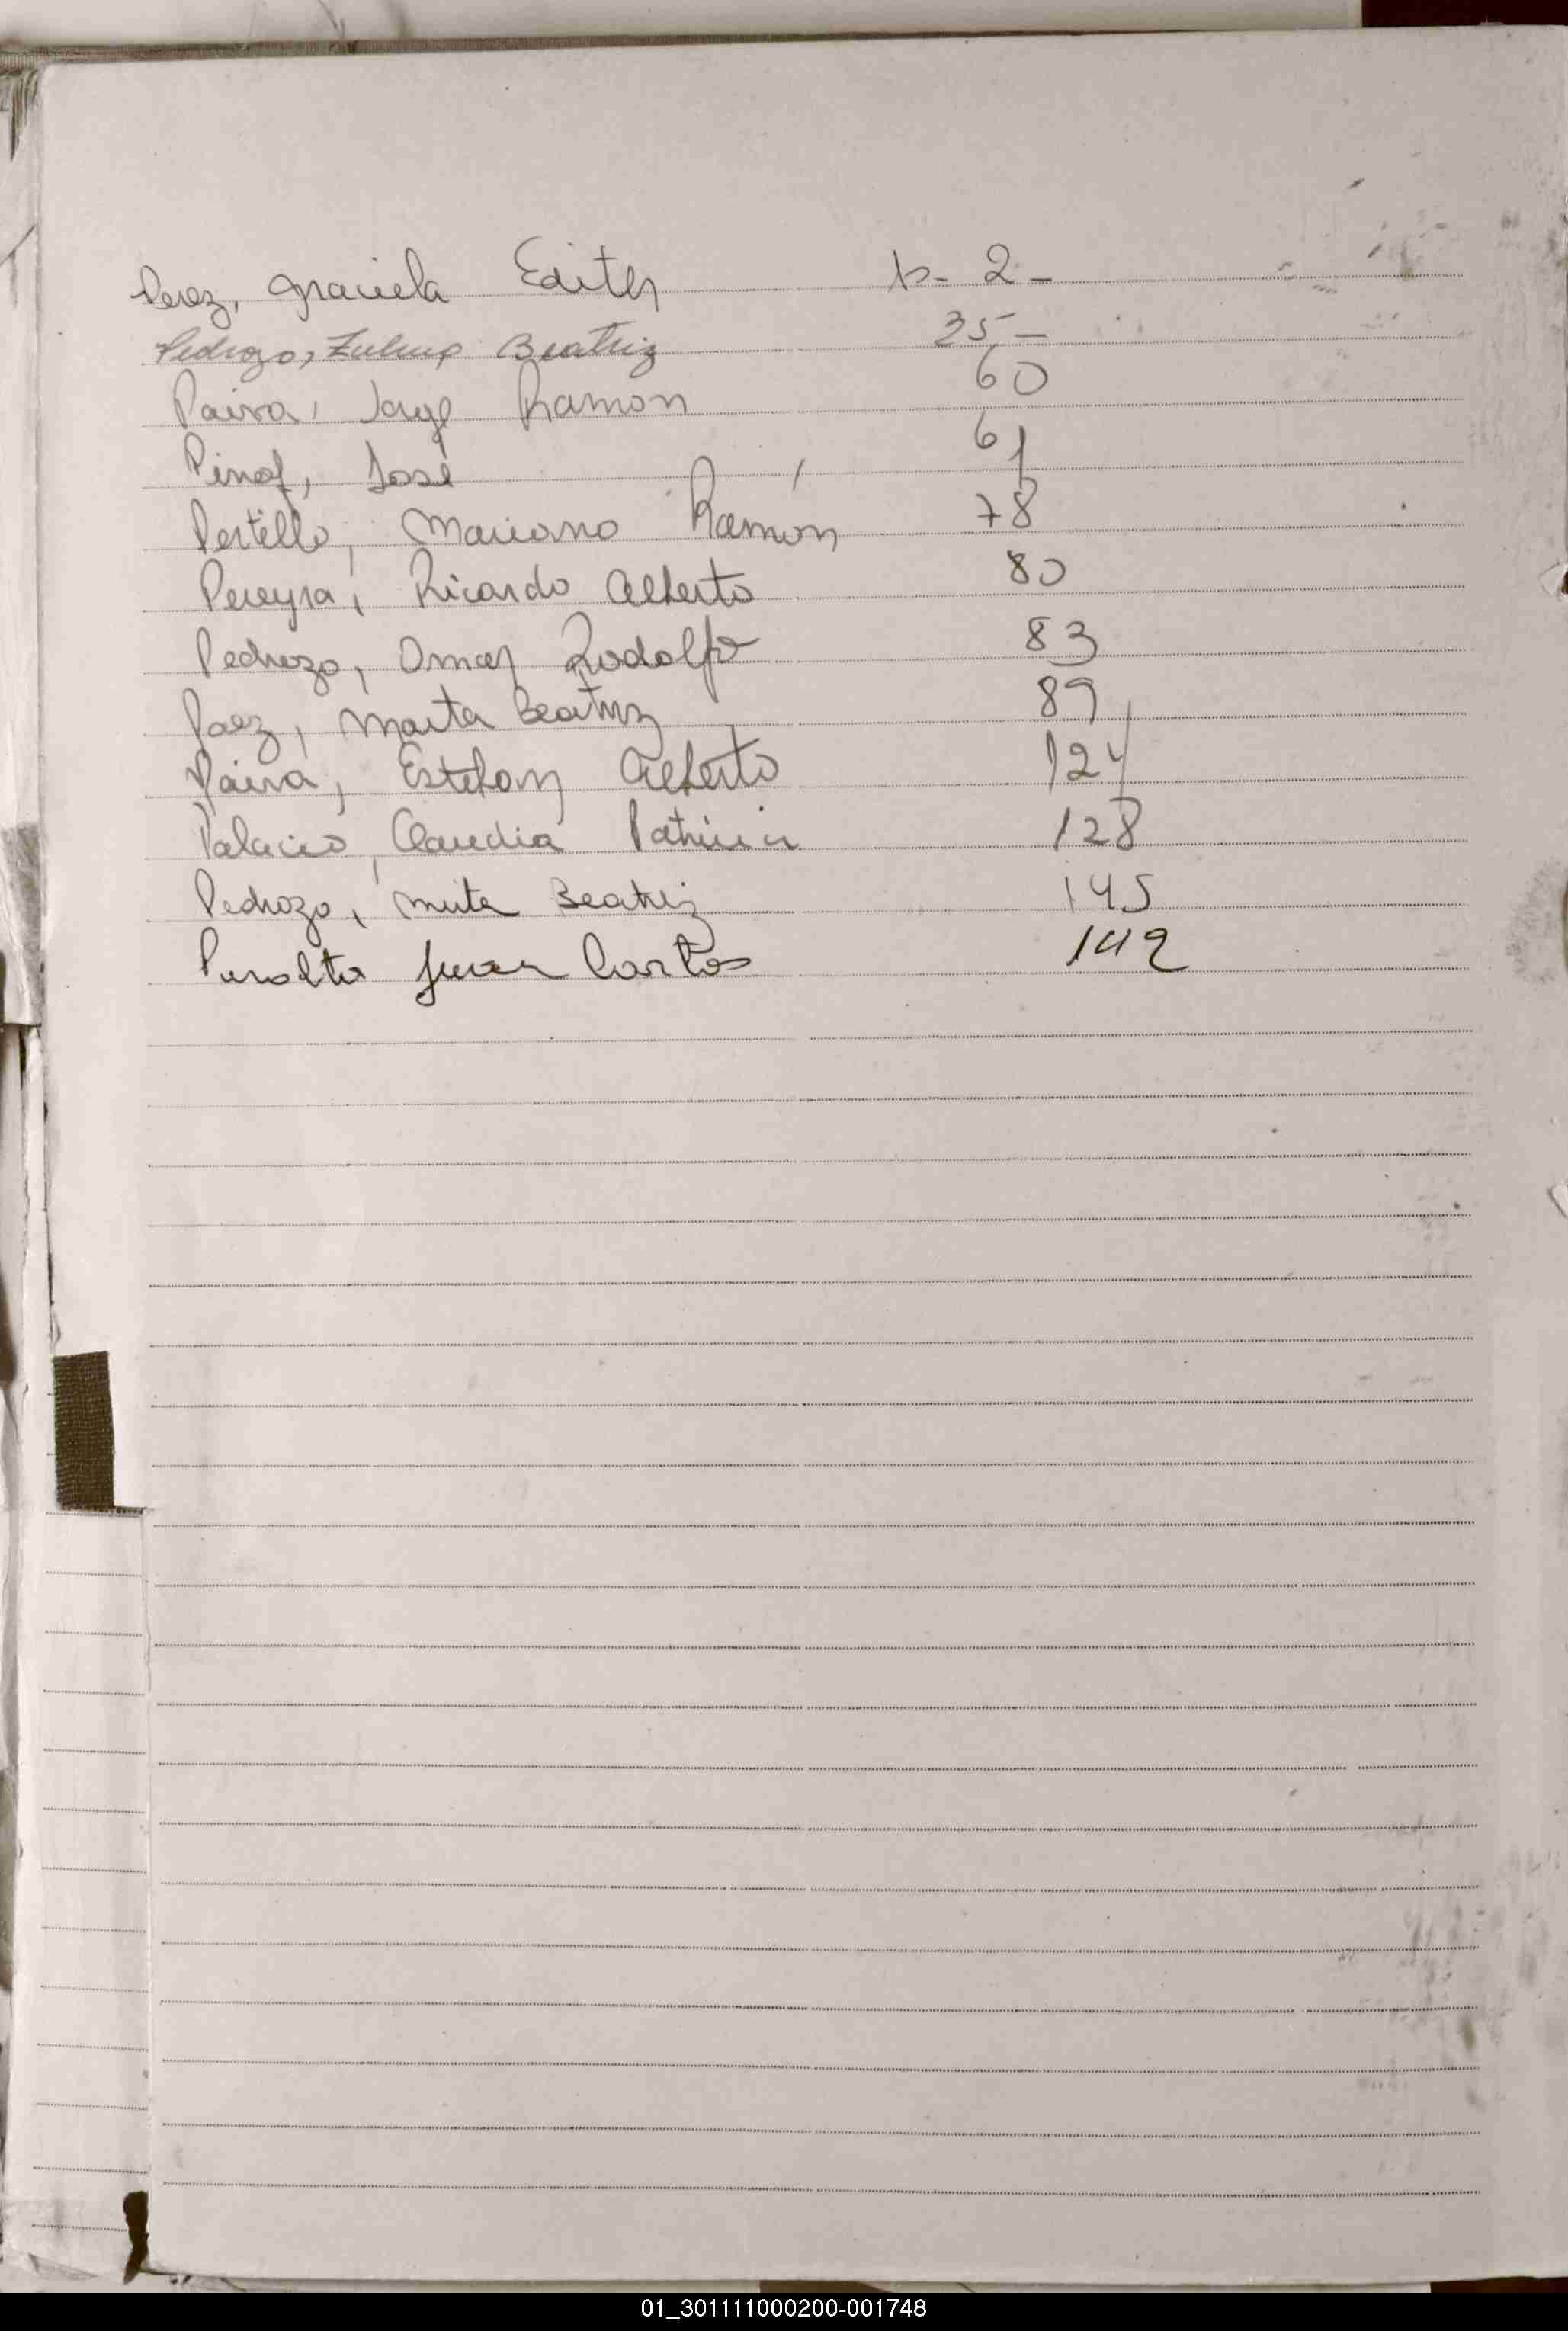 Perez, Graciela Edith p- 2-
Pedrozo, Zulma Beatriz 35-
Paiva, Jorge Ramon 60
José 61
Portillo, Mariano Ramón 78
Pereyra, Ricardo Alberto 80
Pedrozo, Omar Rodolfo 83
Paez, Marta Beatriz 89
Paiva, Esteban Alberto 124
Palacio, Claudia Patricia 128
Pedrozo, Mirta Beatriz 145
Peralta Juan Carlos 142
01_301111000200-001748